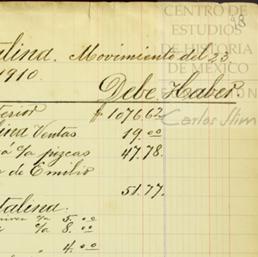 CENTRO DE
ESTUDIOS
DE HISTORIA
DE MÉXICO
Carlos Slim
98
alina. Movimiento del 23
1910.
Debe. Haber.
terior $ 1076.62
lina Ventas 19.00
á %a piezcas 47.78.
de Emilio
51.77.
talina.
%a 5.00
%a 8.00
4.00